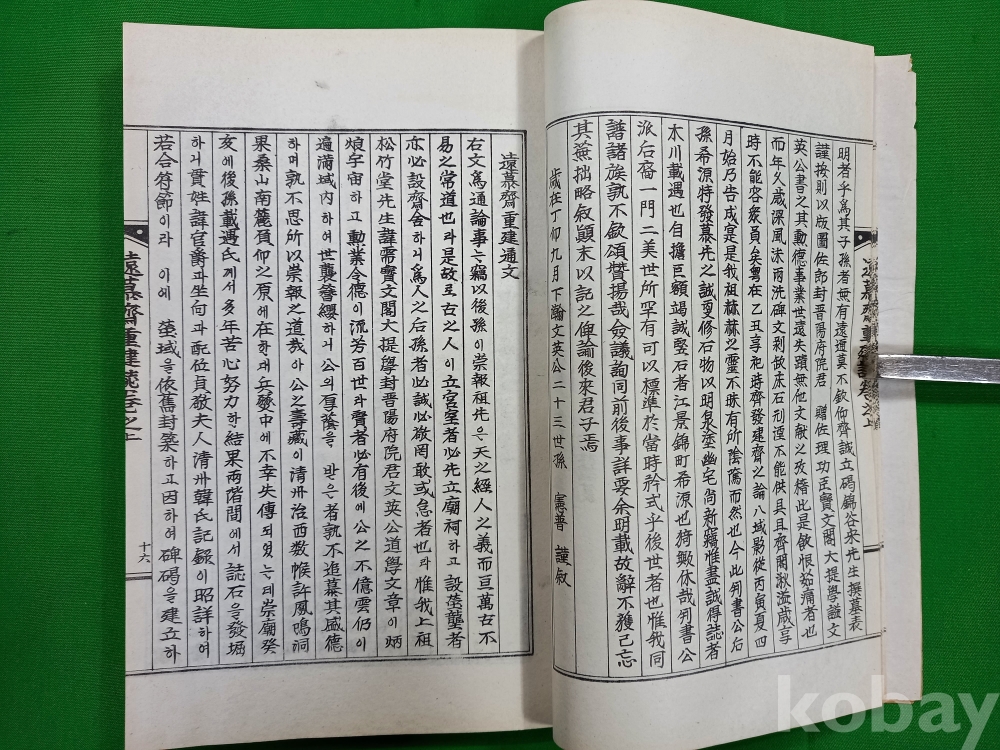 明者乎爲其子孫者無有遠邇莫不欽仰齊誠立碣錦谷宋先生撰墓表
謹按則以版圖佐郎封晋陽府院君 贈佐理功臣寶文閣大提學諡文
英公書之其勳德事業世遠失蹟無他文献之攷稽此是飮恨茹痛者也
而年久歲深風沫雨洗碑文剥
時不能容衆員矣粤在乙丑享祀時齊發建齋之論八域影從丙寅夏四
月始乃告成寔是我祖赫赫之靈不昧有所陰騭而然也今此判書公后
孫希源特發慕先之誠更修石物以明泉坮幽宅尚新竊惟盡誠得誌者
太川載遇也自擔巨額竭誠竪石者江景錦町希源也猗歟休哉判書公
派后裔一門二美世所罕有可以標準於當時矜式乎後世者也惟我同
譜諸族孰不欽頌贊揚哉僉議詢同前後事詳要余明載故辭不獲已忘
其蕪拙略叙顚末以記之俾諭後來君子焉
歲在丁卯九月下澣文英公二十三世孫 憲普 謹叙
遠慕齋重建通文
右文爲通諭事는竊以後孫이崇報祖先은天之經人之義而亘萬古不
易之常道也라是故로古之人이立宮室者必先立廟祠하고設塋壟者
亦必設齋舍하니爲人之后孫者必誠必敬罔敢或怠者也라惟我上祖
松竹堂先生諱需寶文閣大提學封晋陽府院君文英公道學文章이炳
烺宇宙하고勳業令德이流芳百世라賢者必有後에公之不億雲仍이
遍滿域內하여世襲簪纓하니公의厚蔭을 받은者孰不追慕其盛德
하며孰不思所以崇報之道哉아公之壽藏이清州治西数帿許鳳鳴洞
果桑山南麓負仰之原에在한데兵燹中에不幸失傳되였는데崇廟癸
亥에後孫載遇氏께서多年苦心努力한結果兩階間에서誌石을發堀
하니貫姓諱官爵과坐向과配位貞敬夫人清州韓氏記錄이昭詳하여
若合符節이라 이에 塋域을依舊封築하고因하여碑碣을建立하
十六
kobay